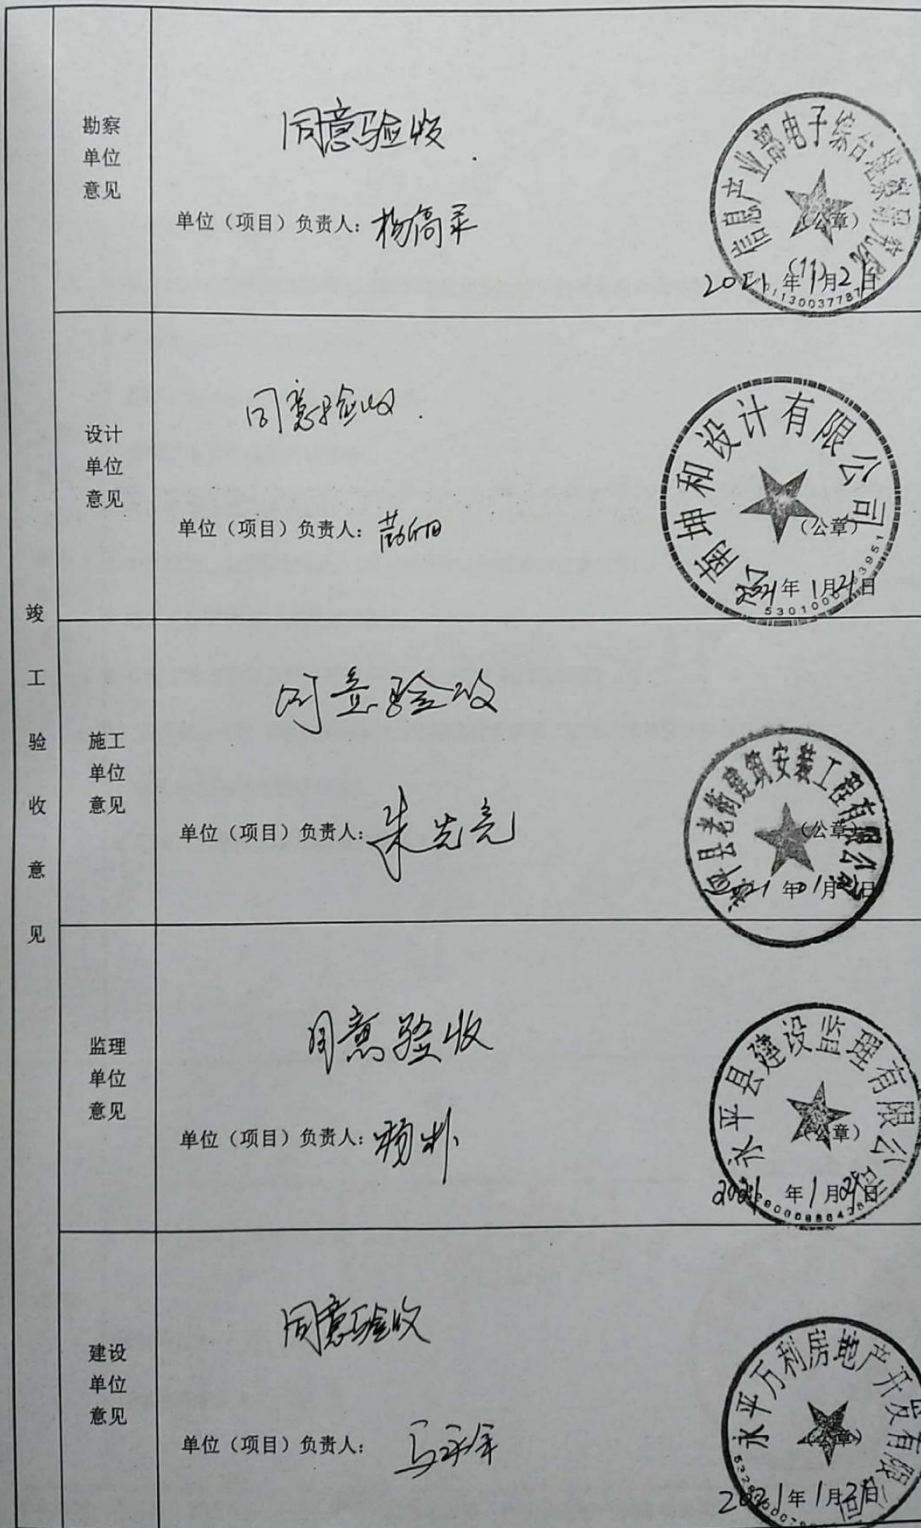 竣工验收意见
勘察
单位
意见
同意验收
单位（项目）负责人：
信息产业部电子综合勘察研究院
(11)
（公章）
2021年1月21日
设计
单位
意见
同意验收
单位（项目）负责人：
云南坤和设计有限公司
（公章）
2021年1月21日
施工
单位
意见
同意验收
单位（项目）负责人：朱先亮
老街建筑安装工程有限公司
（公章）
年 月 日
监理
单位
意见
同意验收
单位（项目）负责人：杨彬
永平县建设监理有限公司
（公章）
2021年1月21日
建设
单位
意见
同意验收
单位（项目）负责人：
永平万利房地产开发有限公司
（公章）
2021年1月21日